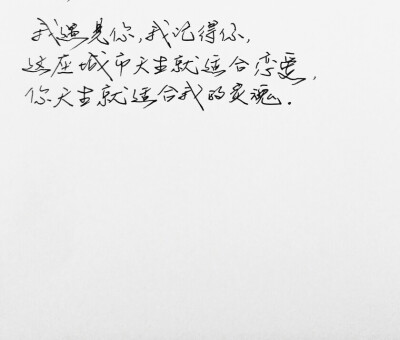 我遇见你,我记得你,
这座城市天生就适合恋爱,
你天生就适合我的灵魂.